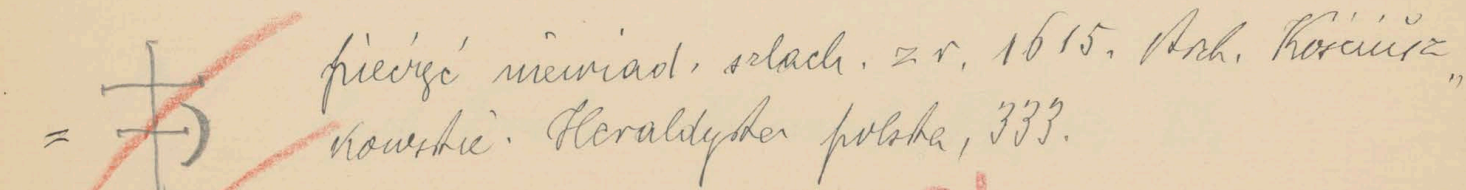 pieczęć niewiad. szlach. z r. 1615. Arch. Kościusz„
= kowskie. Heraldyka polska, 333.